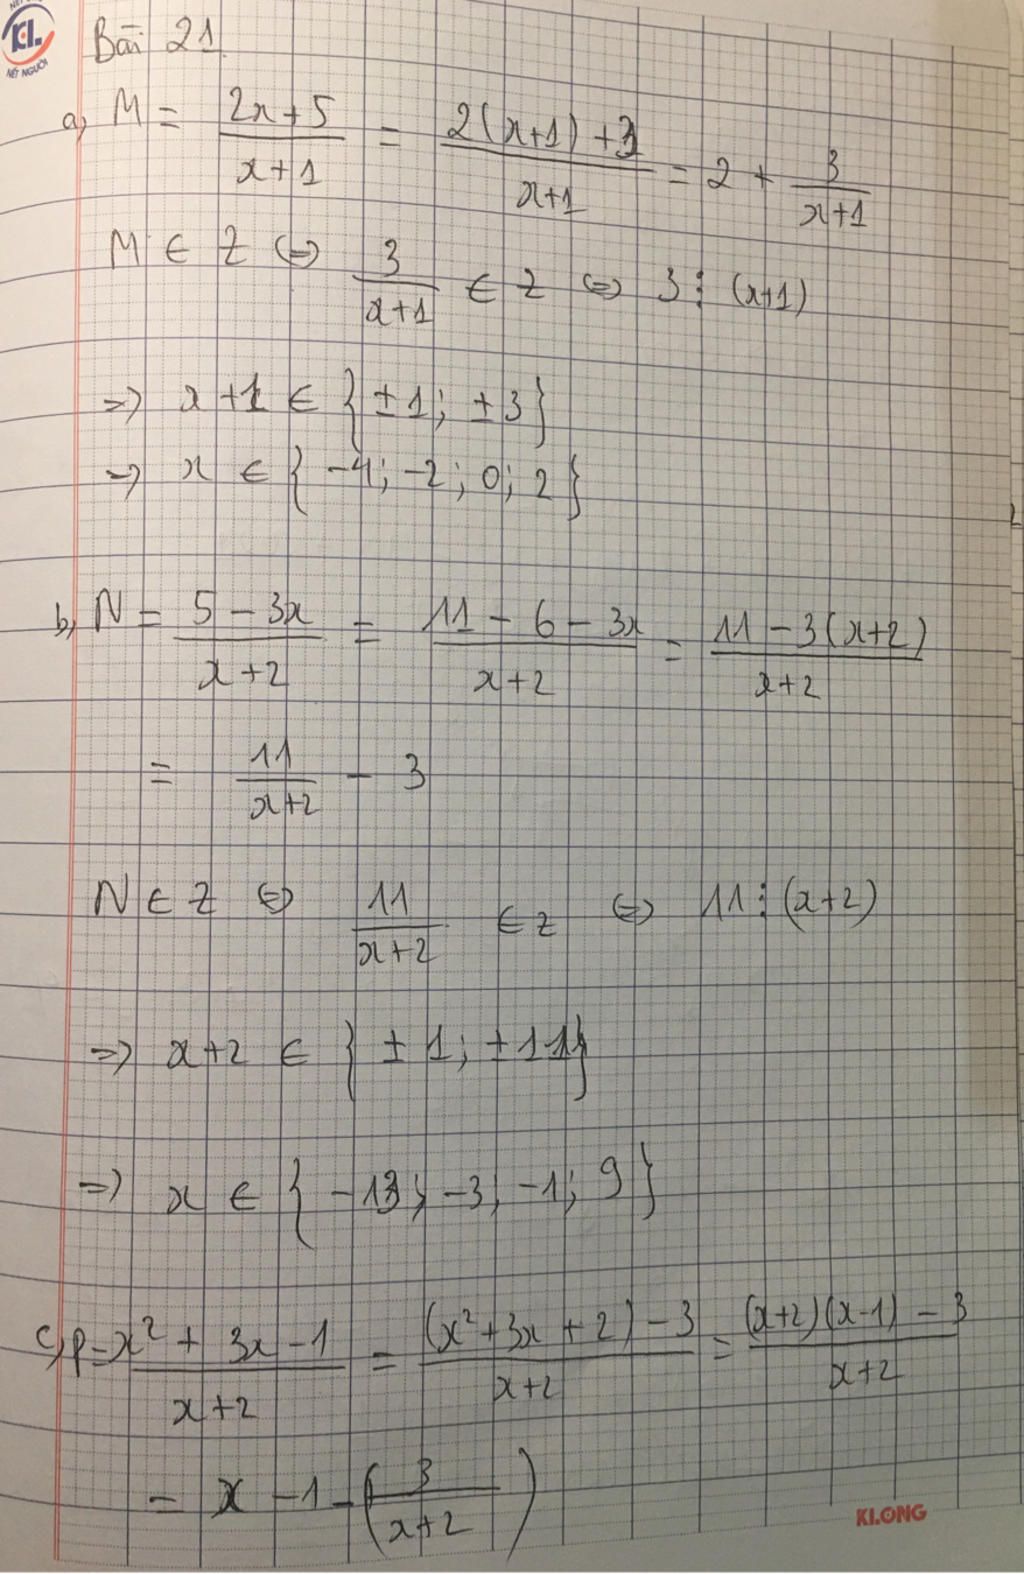 KL.
NÉT NGƯỜI
Bài 21
a, M = (2x+5)/(x+1) = (2(x+1)+3)/(x+1) = 2 + 3/(x+1)
M ∈ Z ⇔ 3/(x+1) ∈ Z ⇔ 3 ⋮ (x+1)
⇒ x+1 ∈ {±1; ±3}
⇒ x ∈ {-4; -2; 0; 2}
b, N = (5-3x)/(x+2) = (11-6-3x)/(x+2) = (11-3(x+2))/(x+2)
= 11/(x+2) - 3
N ∈ Z ⇔ 11/(x+2) ∈ Z ⇔ 11 ⋮ (x+2)
⇒ x+2 ∈ {±1; ±11}
⇒ x ∈ {-13; -3; -1; 9}
c, P = (x²+3x-1)/(x+2) = ((x²+3x+2)-3)/(x+2) = ((x+2)(x-1)-3)/(x+2)
= x-1-(3/(x+2))
KLONG